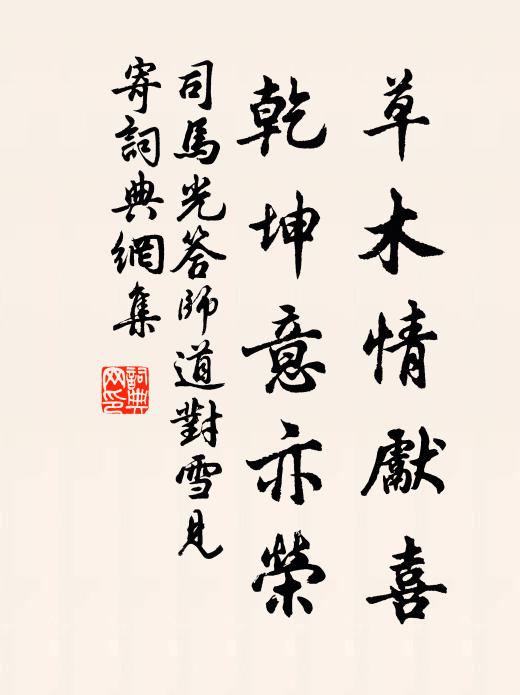 草木情獻喜
乾坤意亦榮
司馬光答師道對雪見
寄詞典網集
詞典網印